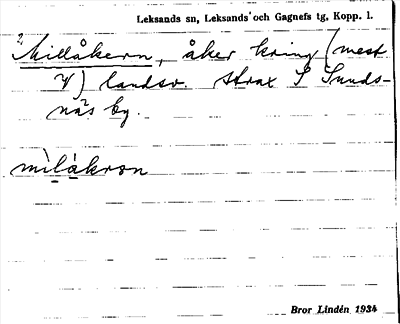 Leksands sn, Leksands och Gagnefs tg, Kopp. l.
? Millåkern, åker kring (mest
V) landsv. strax S Sunds-
näs by.
mìlåkron
Bror Lindén 1934